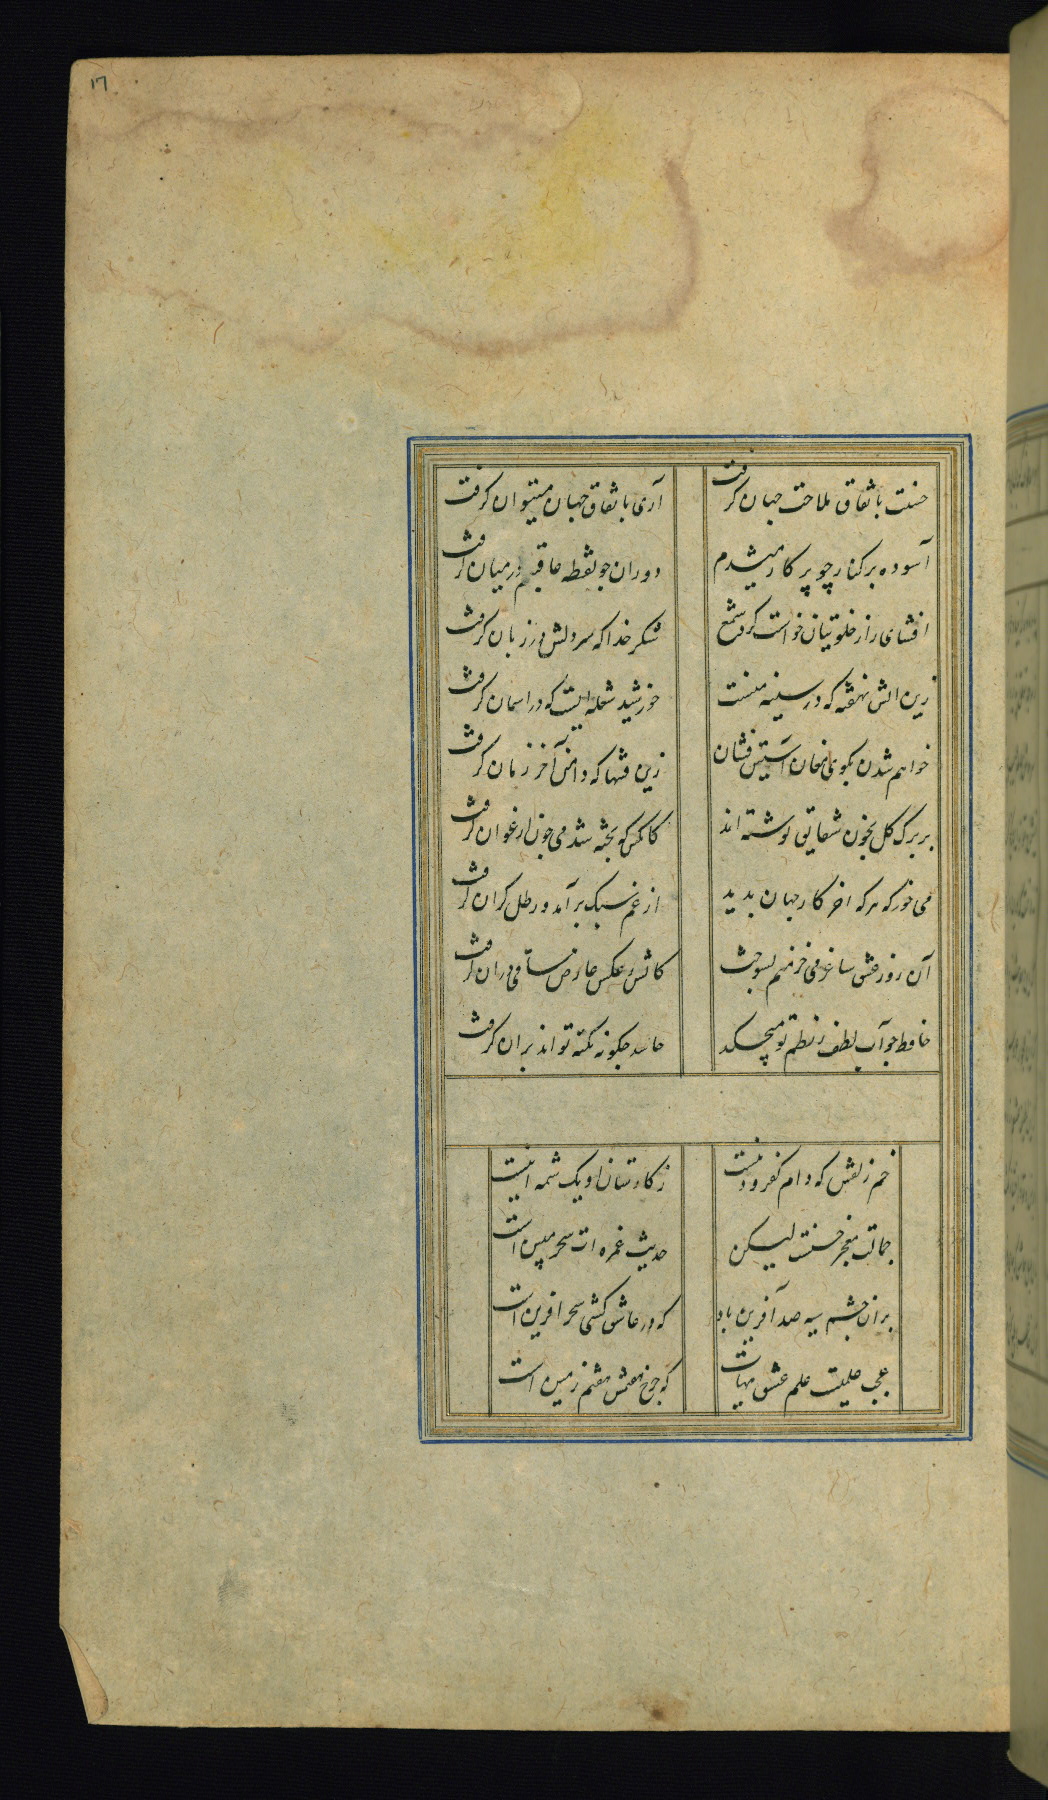 ١٦
حسنت باتفاق ملاحت جهان گرفت آری باتفاق جهان میتوان گرفت
آسوده بر کنار چو پرکار میشدم دوران چو نقطه عاقبتم در میان گرفت
افشای راز خلوتیان خواست کرد شمع شکر خدا که سر دلش در زبان گرفت
زین اتش نهفته که در سینه منست خورشید شعله ایست که در اسمان گرفت
خواهم شدن بکوی مغان آستین فشان زین فتنها که دامن آخر زمان گرفت
بر برک کل بخون شقایق نوشته اند کانکس که پخته شد می چون ارغوان گرفت
می خور که هر که اخر کار جهان بدید از غم سبک برآمد و رطل کران گرفت
آن روز عشق ساغر می خرمنم بسوخت کاتش ز عکس عارض ساقی در ان گرفت
حافظ چو آب لطف ز نظم تو میچکد حاسد چکونه نکته تواند بران گرفت
خم زلفش که دام کفر و دینست ز کارستان او یک شمه اینست
جمالت معجز حسنست لیکن حدیث غمزه ات سحر مبین است
بران چشم سیه صد آفرین باد که در عاشق کشی سحر افرین است
عجب علمیست علم عشق هیهات که چرخ هفتمش هفتم زمین است